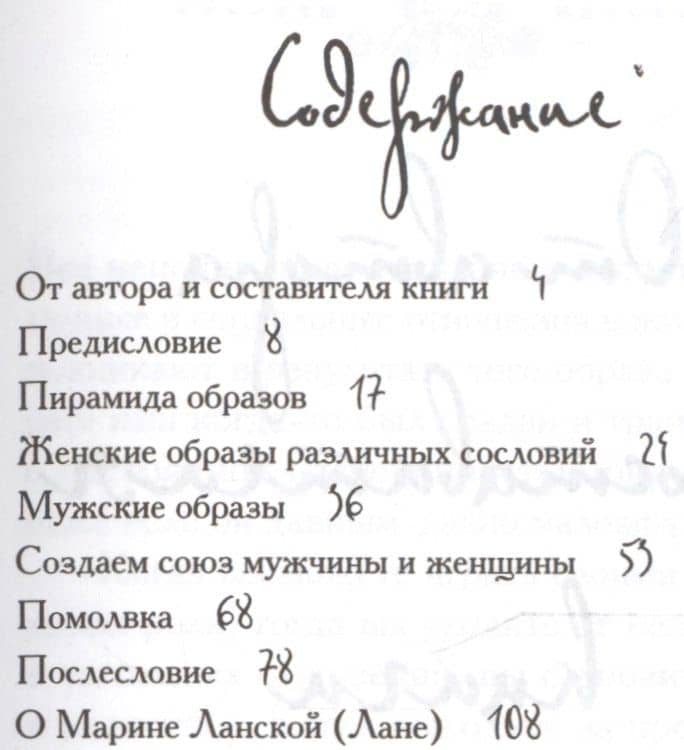 Содержание
От автора и составителя книги 4
Предисловие 8
Пирамида образов 17
Женские образы различных сословий 21
Мужские образы 36
Создаем союз мужчины и женщины 53
Помолвка 68
Послесловие 78
О Марине Ланской (Лане) 108